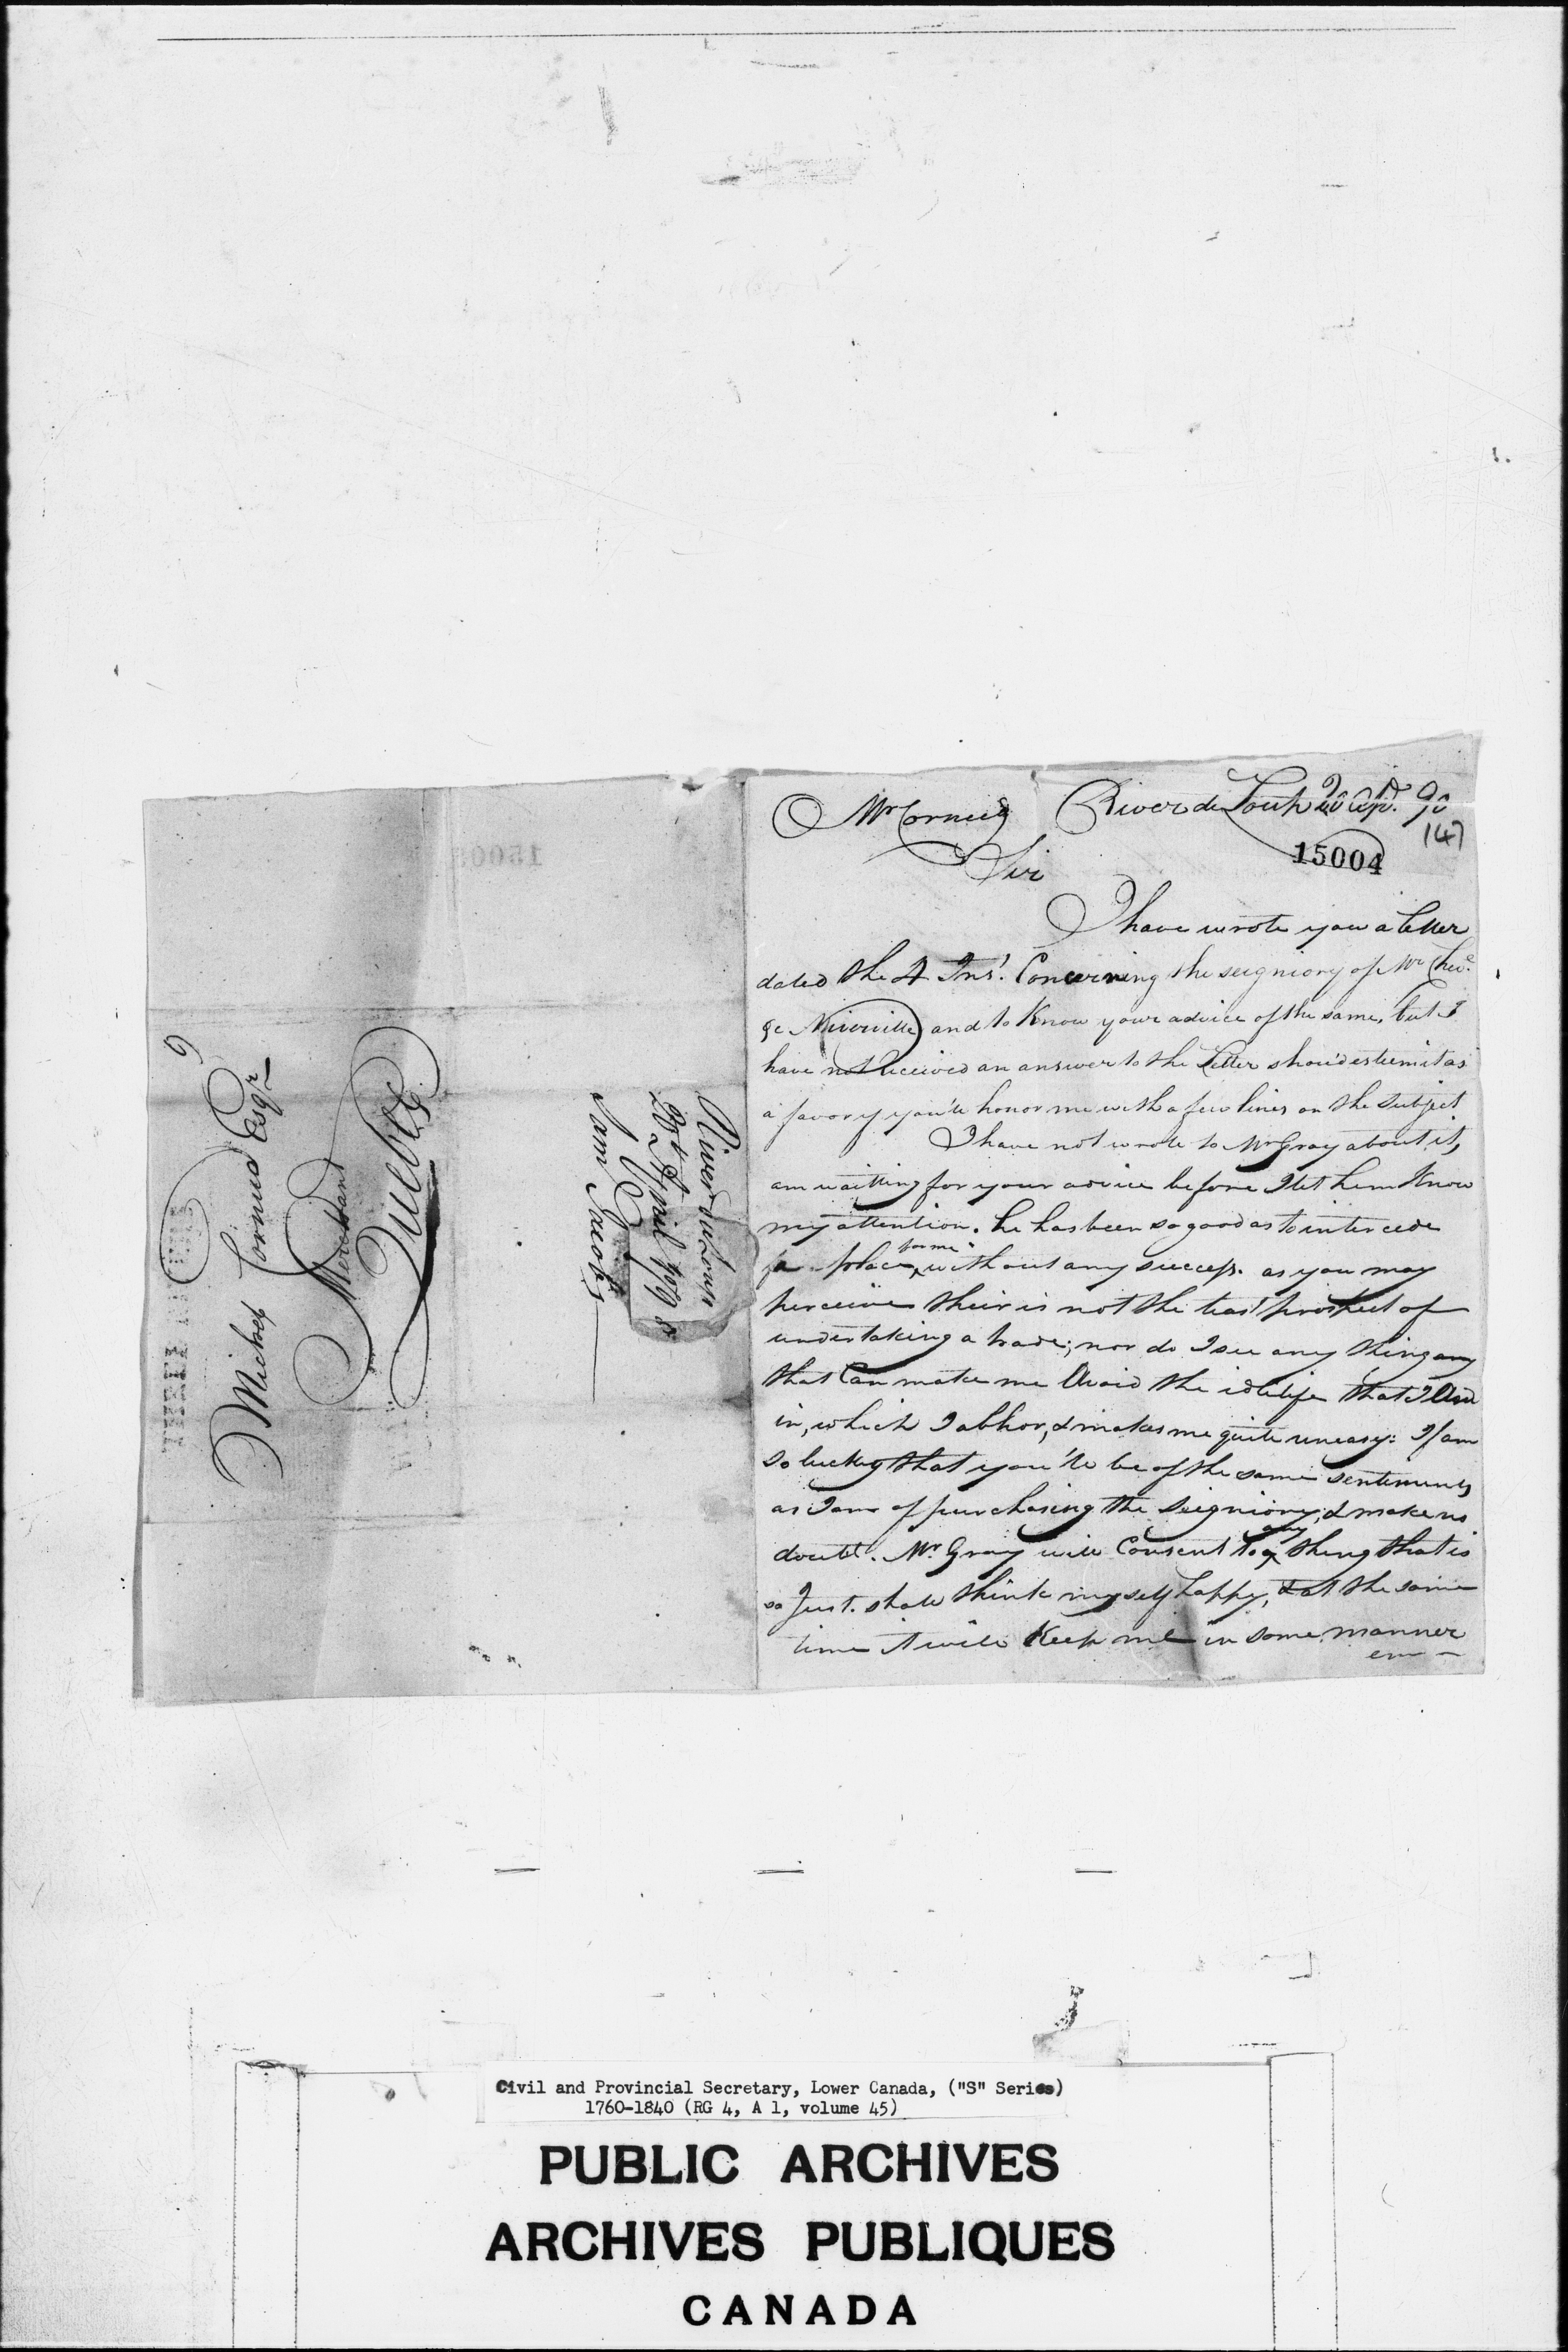 Mr Cornud River du Loup 20 Apl. 90
147
15004
Sir
I have wrote you a Letter
dated the 4 Inst. Concerning the seigniory of Mr Chevr.
de Niverville and to Know your advice of the same, but I
have not received an answer to the Letter shou'd esteem it as
a favor if you'll honor me with a few lines on the Subject
I have not wrote to Mr Gray about it,
am waitting for your advice before I let him Know
my attention. he has been so good as to intercede
for me
a place, without any success. as you may
perceive their is not the least prospect of
undertaking a trade; nor do I see any thing any
that Can make me Avoid the idle life that I Am
in, which I abhor, & makes me quite uneasy: If am
so lucky that you'll be of the same sentiments
as I am of purchasing the Seigniory; & make no
any
doubt. Mr. Gray will Consent to thing that is
so Just. shall think myself happy, & at the same
time it will Keep me in some manner
em
River du Loup
20th April 1790
Sam Jacobs
Michel Cornud Esqr
Merchant
Quebec
9
THREE RIVERS
Civil and Provincial Secretary, Lower Canada, ("S" Series)
1760-1840 (RG 4, A 1, volume 45)
PUBLIC ARCHIVES
ARCHIVES PUBLIQUES
CANADA